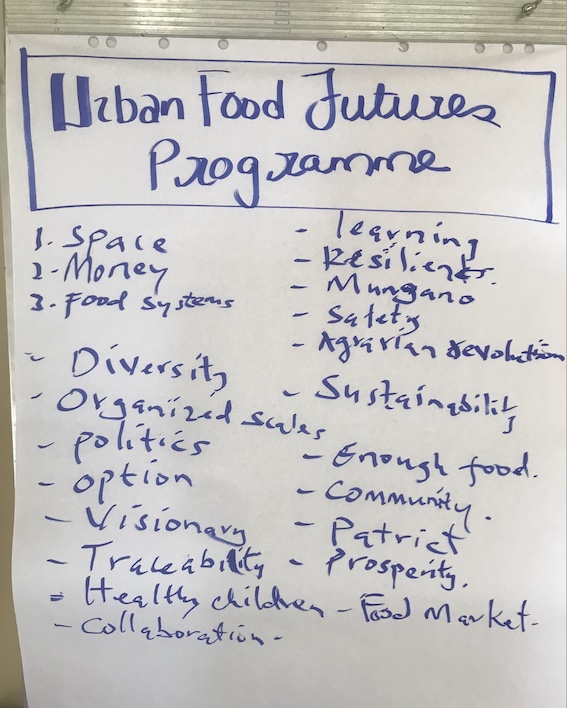 Urban Food Futures
Programme
1. Space
2. Money
3. Food systems
- Diversity
- Organized scales
- politics
- option
- Visionary
- Traceability
- Healthy children
- Collaboration.
- learning
- Resilients.
- Mungano
- Safety
- Agrarian revolution
- Sustainability
- Enough food.
- Community.
- Patrict
- Prosperity.
- Food Market.